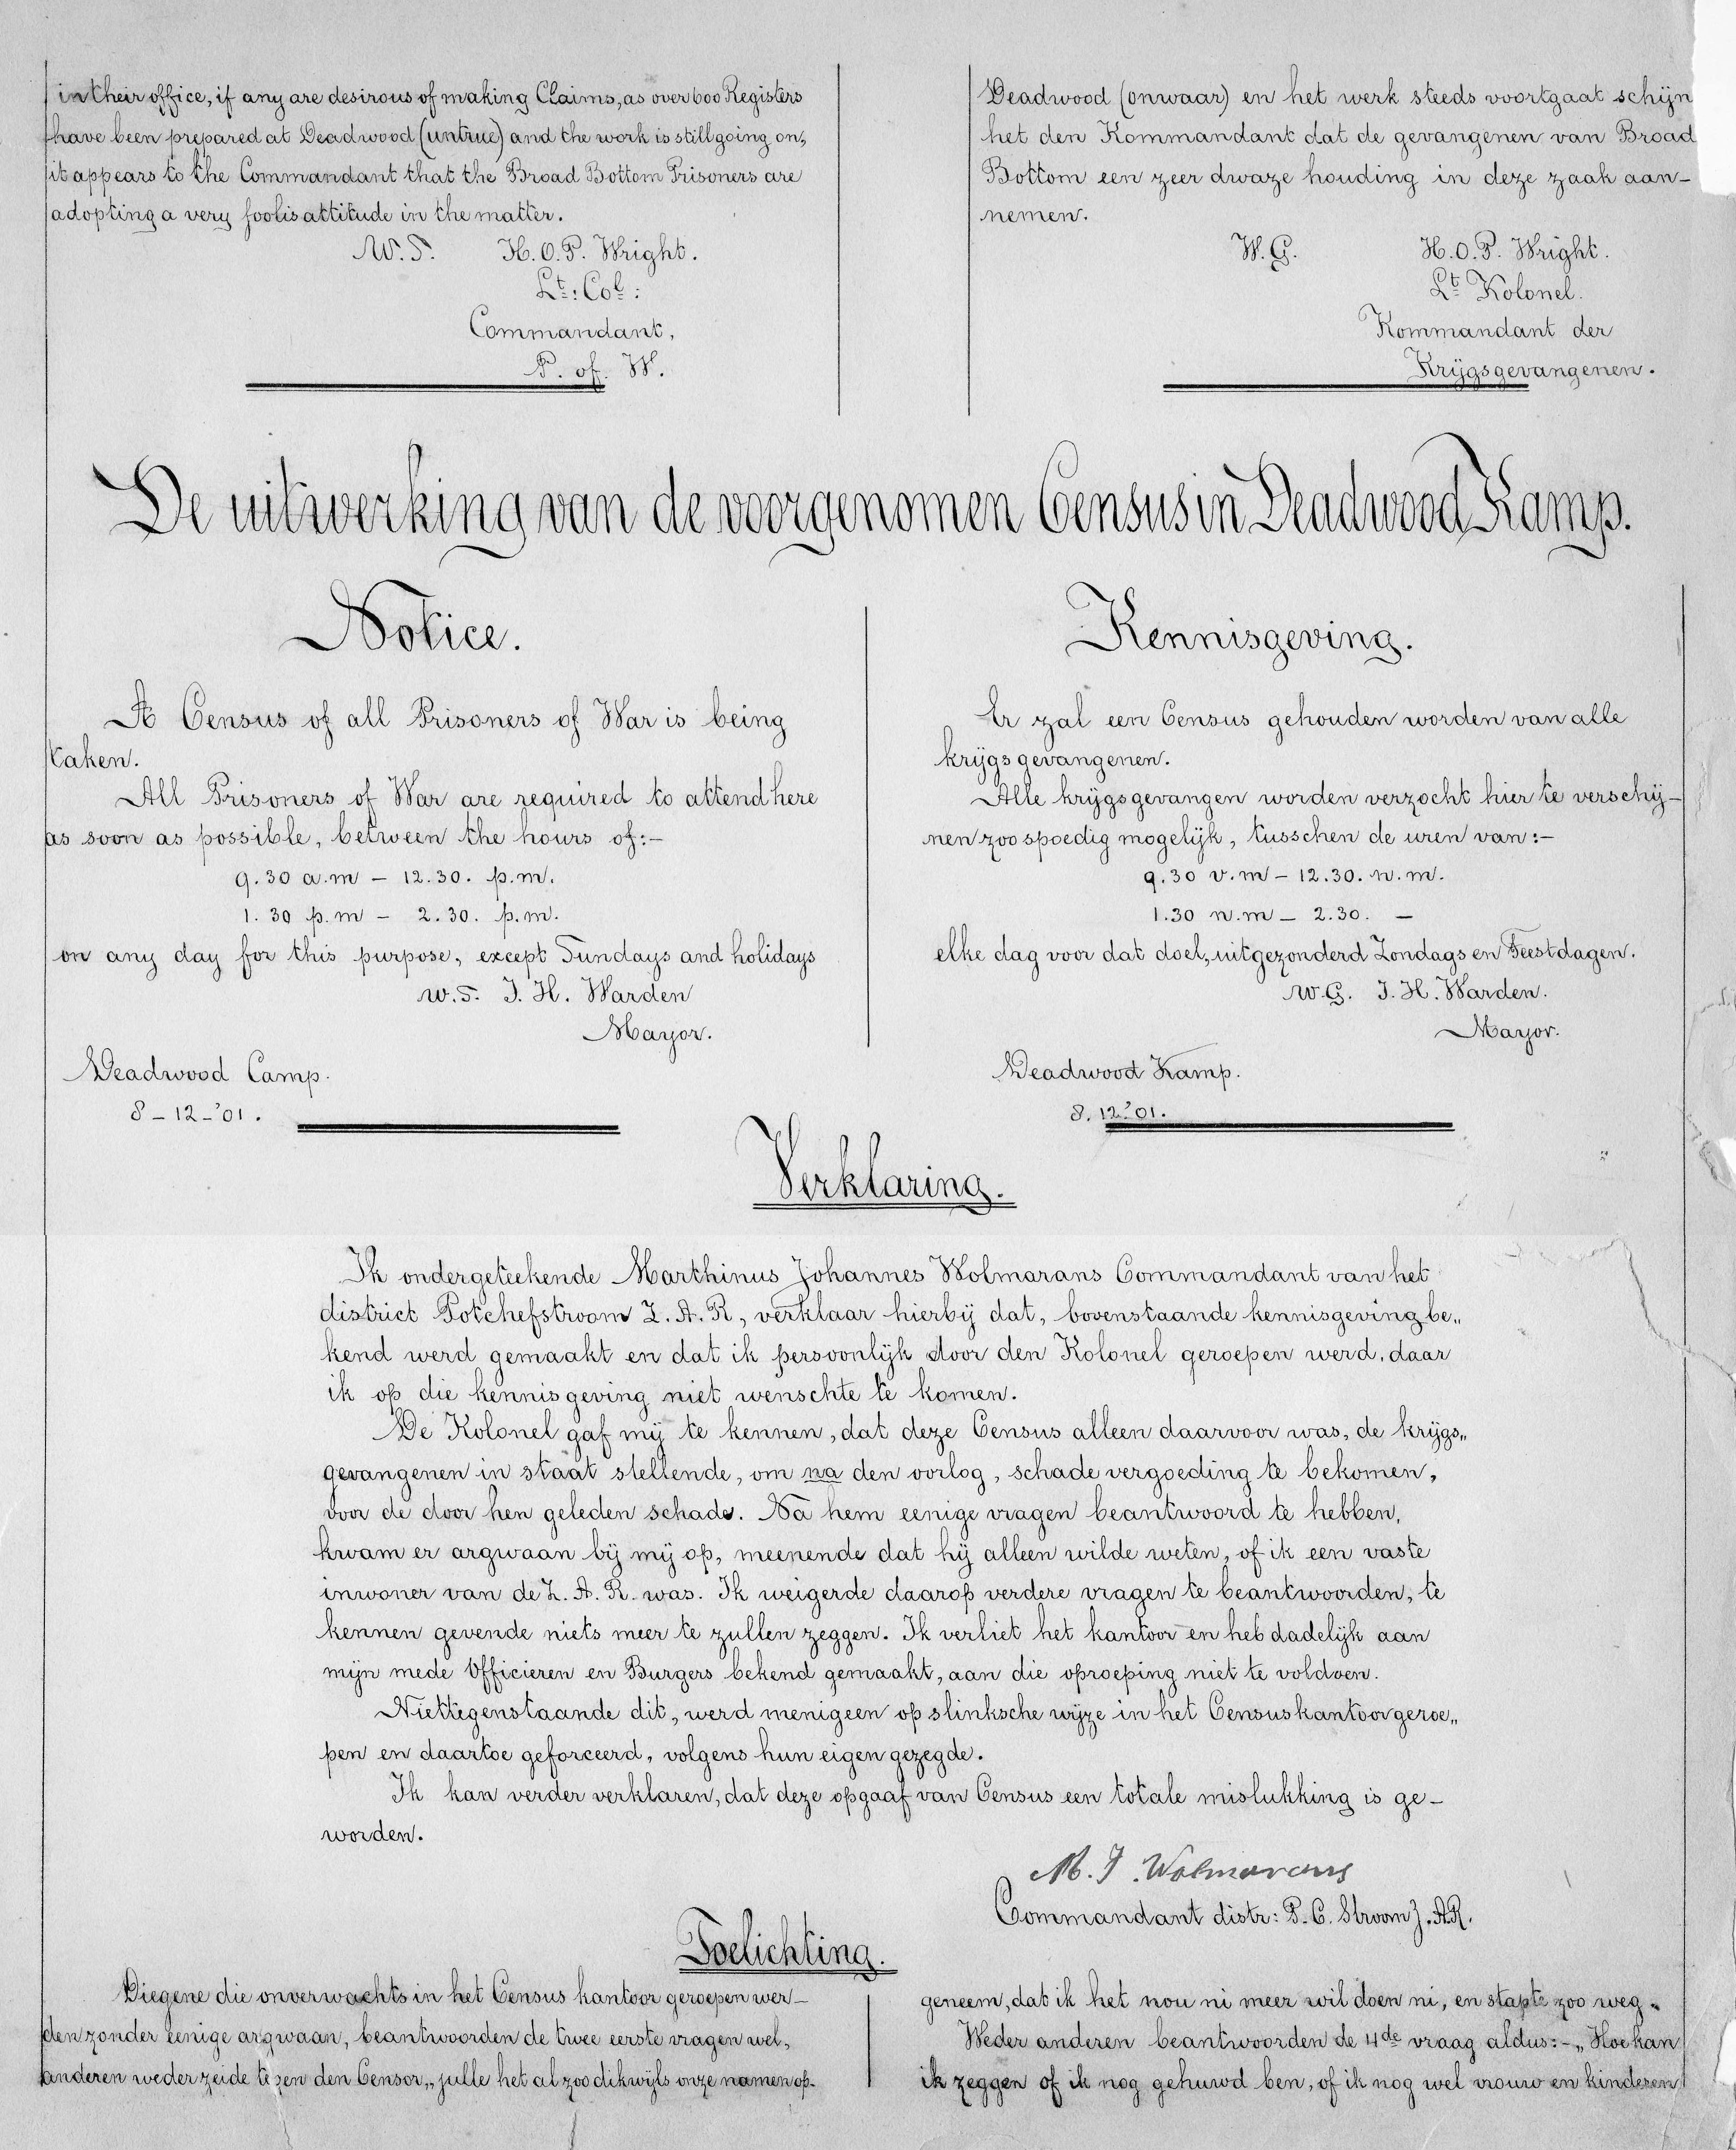 in their office, if any are desirous of making Claims, as over 600 Registers
have been prepared at Deadwood (untrue) and the work is still going on,
it appears to the Commandant that the Broad Bottom Prisoners are
adopting a very foolis attitude in the matter.
W. S. H. O. P. Wright.
Lt: Col:
Commandant,
P. of. W.
Deadwood (onwaar) en het werk steeds voortgaat schijn
het den Kommandant dat de gevangenen van Broad
Bottom een zeer dwaze houding in deze zaak aan-
nemen.
W. G. H. O. P. Wright.
Lt Kolonel.
Kommandant der
Krijgsgevangenen.
De uitwerking van de voorgenomen Census in Deadwood Kamp.
Notice.
A Census of all Prisoners of War is being
taken.
All Prisoners of War are required to attend here
as soon as possible, between the hours of:-
9.30 a.m - 12.30. p.m.
1. 30 p.m - 2.30. p.m.
on any day for this purpose, except Sundays and holidays
W. S. J. H. Warden
Mayor.
Deadwood Camp.
8-12-'01.
Kennisgeving.
Er zal een Census gehouden worden van alle
krijgsgevangenen.
Alle krijgsgevangen worden verzocht hier te verschij-
nen zoo spoedig mogelijk, tusschen de uren van:-
9.30 v.m - 12.30. n.m.
1.30 n.m - 2.30. -
elke dag voor dat doel, uitgezonderd Zondags en Feestdagen.
W. G. J. H. Warden.
Mayor.
Deadwood Kamp.
8. 12.'01.
Verklaring.
Ik ondergeteekende Marthinus Johannes Wolmarans Commandant van het
district Potchefstroom Z. A. R, verklaar hierbij dat, bovenstaande kennisgeving be„
kend werd gemaakt en dat ik persoonlijk door den Kolonel geroepen werd, daar
ik op die kennisgeving niet wenschte te komen.
De Kolonel gaf mij te kennen, dat deze Census alleen daarvoor was, de krijgs„
gevangenen in staat stellende, om na den oorlog, schade vergoeding te bekomen,
voor de door hen geleden schade. Na hem eenige vragen beantwoord te hebben,
kwam er argwaan bij mij op, meenende dat hij alleen wilde weten, of ik een vaste
inwoner van de Z. A. R. was. Ik weigerde daarop verdere vragen te beantwoorden, te
kennen gevende niets meer te zullen zeggen. Ik verliet het kantoor en heb dadelijk aan
mijn mede Officieren en Burgers bekend gemaakt, aan die oproeping niet te voldoen.
Niettegenstaande dit, werd menigeen op slinksche wijze in het Censuskantoor geroe„
pen en daartoe geforceerd, volgens hun eigen gezegde.
Ik kan verder verklaren, dat deze opgaaf van Census een totale mislukking is ge-
worden.
M. J. Wolmarans
Commandant distr: P. C. Stroom Z. A. R.
Toelichting.
Diegene die onverwachts in het Census kantoor geroepen wer-
den zonder eenige argwaan, beantwoorden de twee eerste vragen wel,
anderen weder zeide tegen den Censor „julle het al zoo dikwijls onze namen op-
geneem, dat ik het nou ni meer wil doen ni, en stapte zoo weg.
Weder anderen beantwoorden de 4de vraag aldus:- „Hoe kan
ik zeggen of ik nog gehuwd ben, of ik nog wel vrouw en kinderen